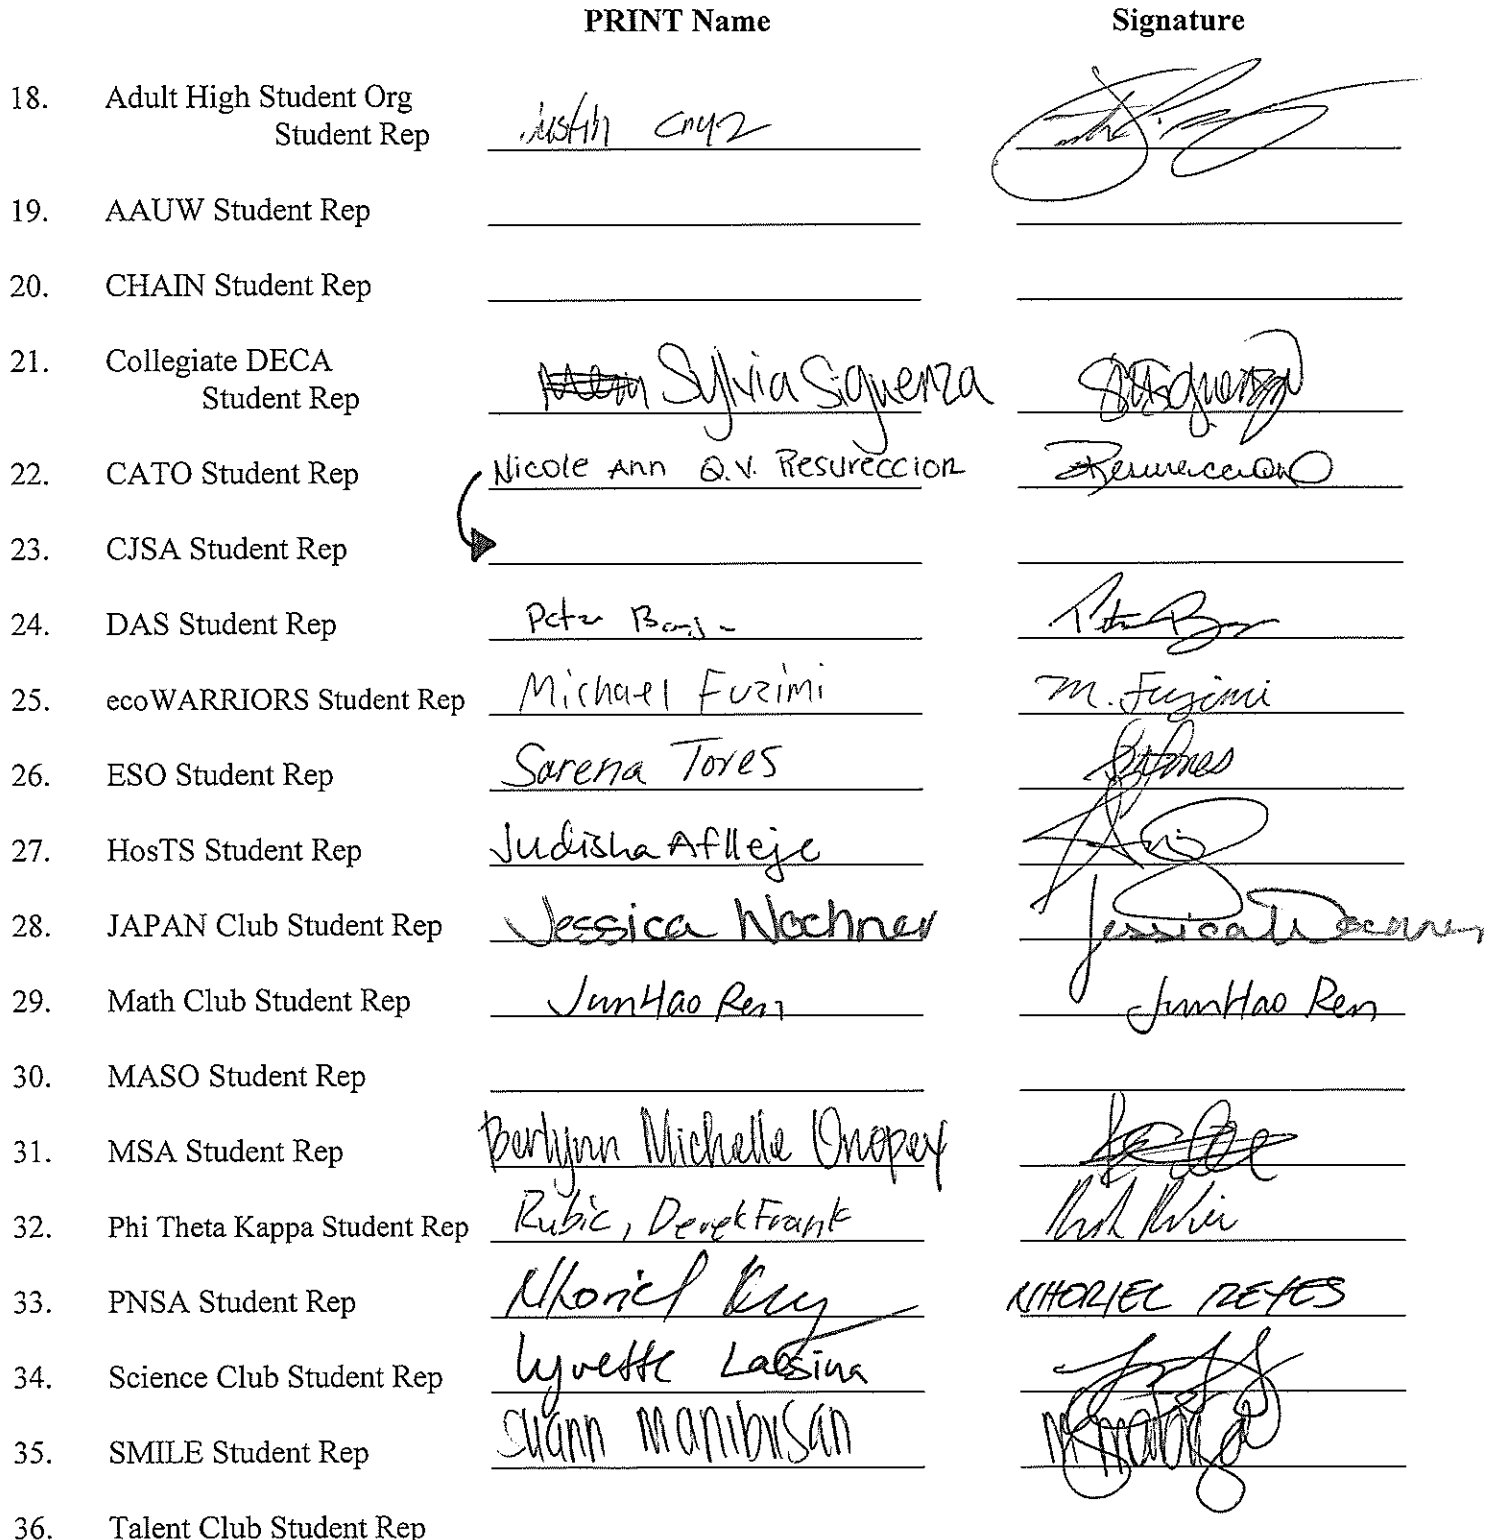 PRINT Name Signature
18. Adult High Student Org
Student Rep Justin Cruz
19. AAUW Student Rep
20. CHAIN Student Rep
21. Collegiate DECA
Student Rep Sylvia Siguenza SSiguenza
22. CATO Student Rep Nicole Ann Q.V. Resureccion Resureccion
23. CJSA Student Rep
24. DAS Student Rep Peter
25. ecoWARRIORS Student Rep Michael Fuzimi M. Fuzimi
26. ESO Student Rep Sarena Tores
27. HosTS Student Rep Judisha Aflleje
28. JAPAN Club Student Rep Jessica Wochner Jessica Wochner
29. Math Club Student Rep JunHao Ren JunHao Ren
30. MASO Student Rep
31. MSA Student Rep Berlynn Michelle Onopey
32. Phi Theta Kappa Student Rep Rubic, Derek Frank
33. PNSA Student Rep Nhoriel NHORIEL REYES
34. Science Club Student Rep Lyvette
35. SMILE Student Rep Manibusan
36. Talent Club Student Rep